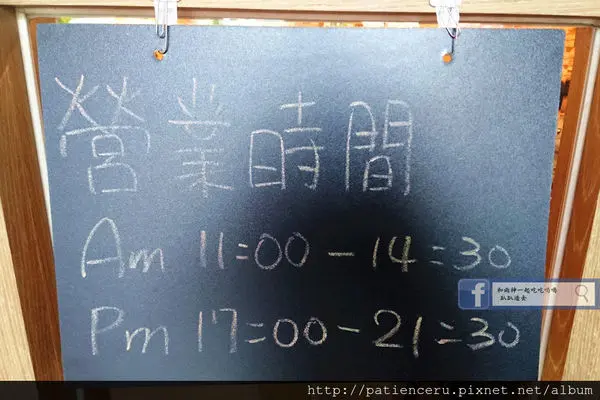 營業時間
Am 11:00-14:30
Pm 17:00-21:30
和病神一起吃吃喝喝
趴趴造去
http://patienceru.pixnet.net/album